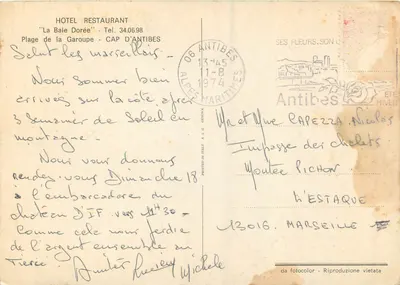 HOTEL RESTAURANT
"La Baie Dorée" - Tel. 34.06.98
Plage de la Garoupe - CAP D'ANTIBES
Salut les marseillais.
Nous sommes bien
arrivés sur la côte, après
3 semaines de soleil en
montagne.
Nous vous donnons
rendez-vous Dimanche 18
à l'embarcadère du
château D'IF vers 11H30 -
comme cela nous perdrons
de l'argent ensemble au
Tiercé. Amitiés
Michele
06 ANTIBES
13H45
11-8
1974
ALPES MARITIMES
SES FLEURS, SON
Antibes
Mr et Mme CAPEZZA Nicolas
Impasse des chalets
Montée PICHOU
L'ESTAQUE
13016. MARSEILLE
da fotocolor - Riproduzione vietata